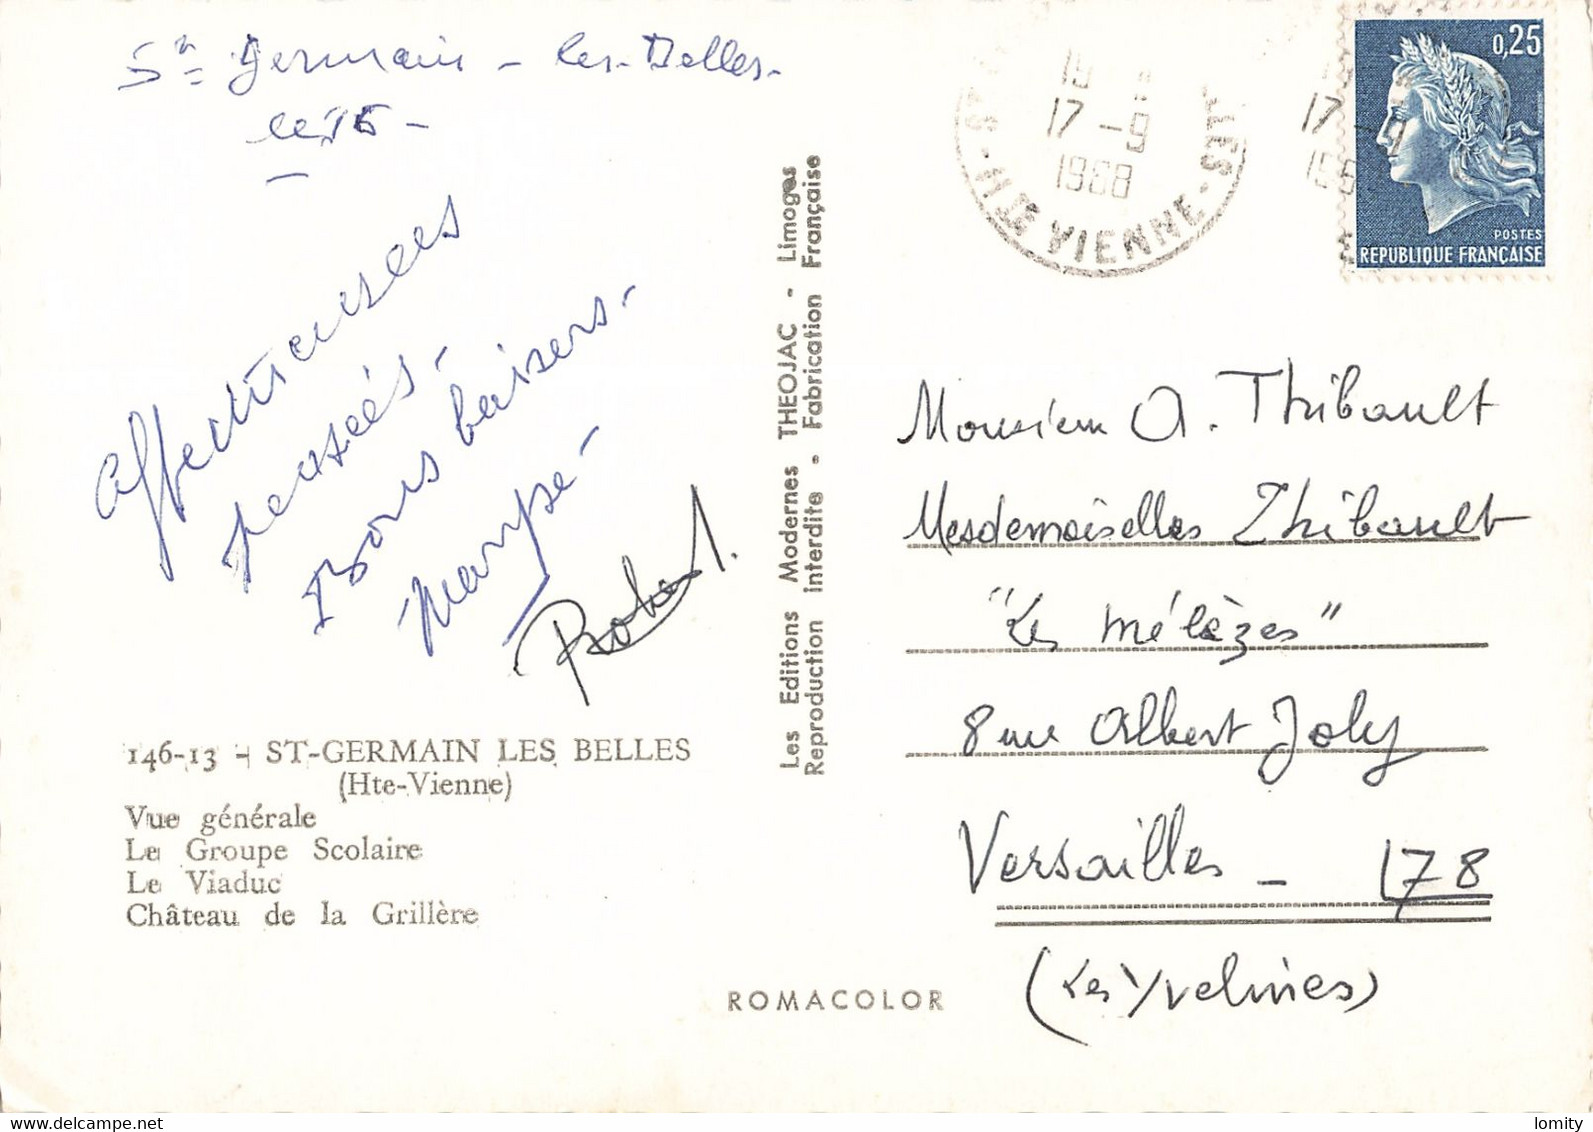 St Germain-les-Belles-
le 16-
Affectueuses
pensées-
Bons baisers-
Robert.
146-13 - ST-GERMAIN LES BELLES
(Hte-Vienne)
Vue générale
Le Groupe Scolaire
Le Viaduc
Château de la Grillère
Les Editions Modernes THEOJAC - Limoges
Reproduction Interdite - Fabrication Française
ROMACOLOR
17-9
1968
Hte VIENNE
17-9
0,25
POSTES
REPUBLIQUE FRANÇAISE
Monsieur A. Thibault
Mesdemoiselles Thibault
"Les Mélèzes"
8 rue Albert Joly
Versailles - 78
(Les Yvelines)
lomity